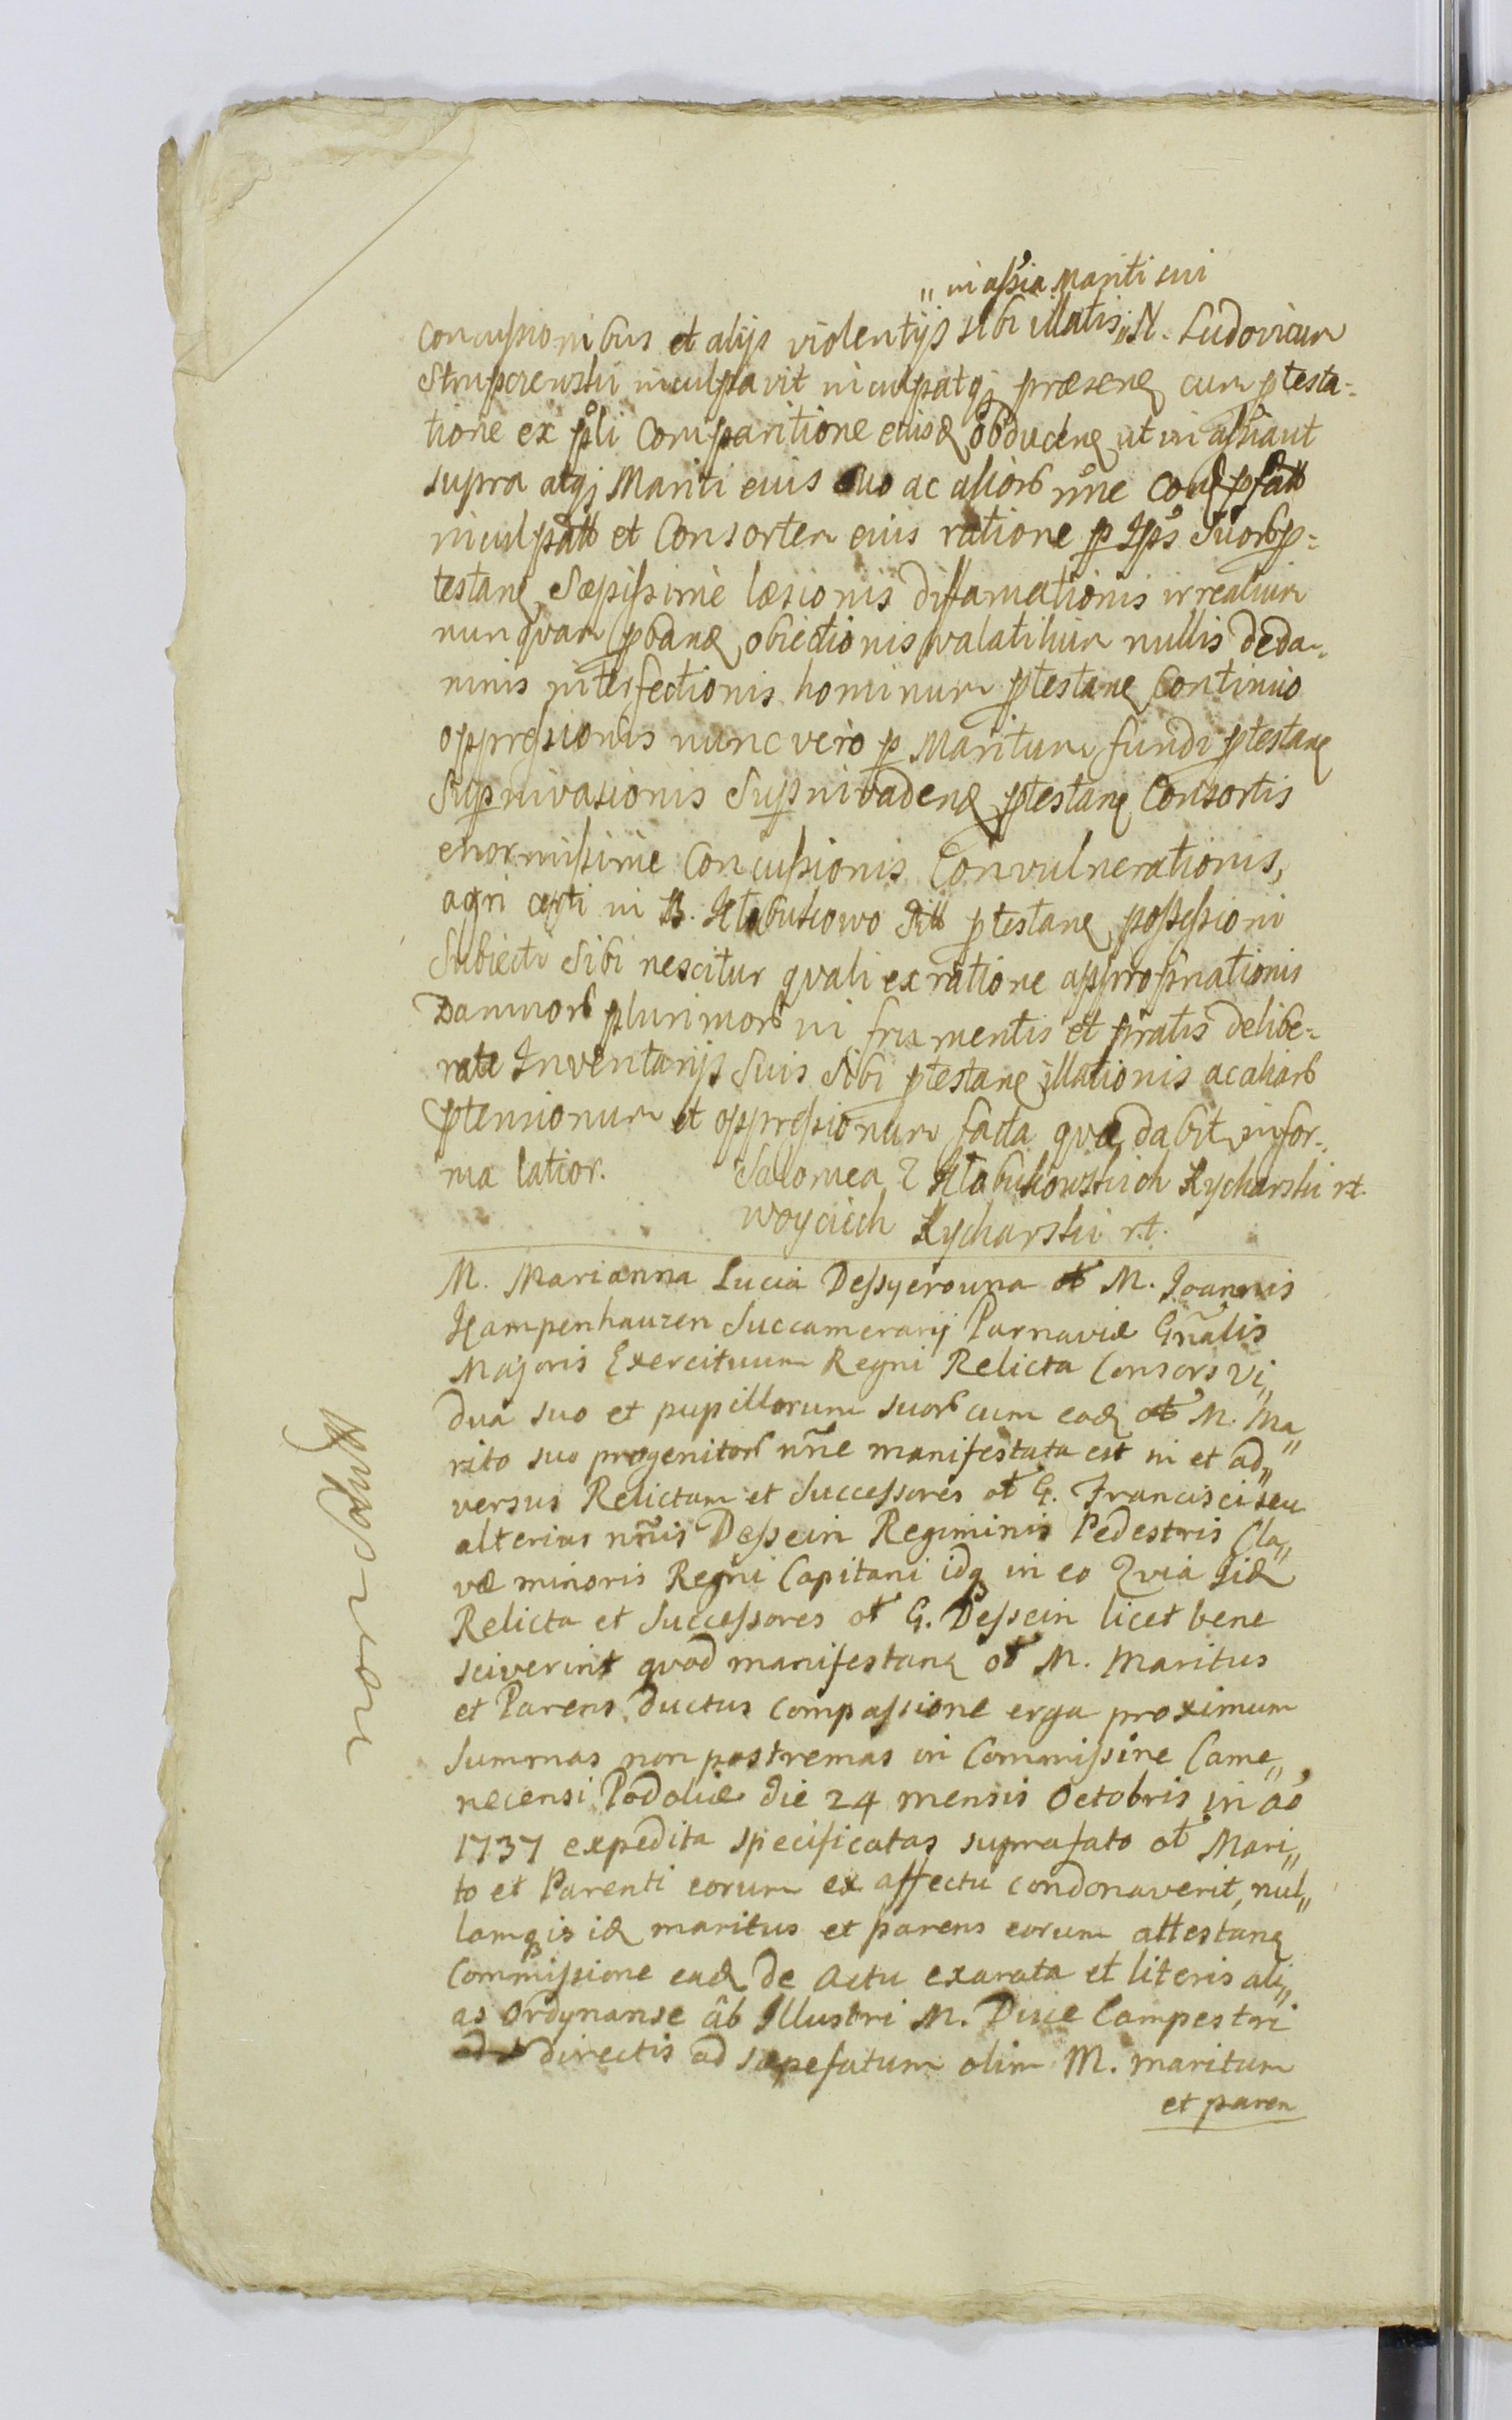 „ in assia Mariti sui
concussionibus et alijs violentijs sibi illatis N. Ludovicum
inculpavit inculpatqj præsenꝫ cum ptesta-
tione ex pli comparitione eiusꝺ obducenꝫ ut in assia ut
supra atqj Mariti eius suo ac alior nne
et Consortem eius ratione p Ips suor p-
testanꝫ sæpissime læsionis diffamationis irrealium
nunquam pbanꝫ obiectionis valatilium nullis de da-
minis interfectionis hominum ptestanꝫ continuo
oppressionis nunc vero p Maritum fundi ptestanꝫ
Supinvasionis Supinvadenꝫ ptestanꝫ Consortis
enormissime Concussionis Convulnerationis,
agri certi in B. Kłabukowo ptestanꝫ possessioni
Subiecti sibi nescitur quali ex ratione appropriationis
Damnor plurimor in frumentis et pratis delibe-
rate Inventarijs suis sibi ptestanꝫ illationis ac aliar
ptensionum et oppressionum facta quæ dabit infor-
ma latior. Salomea z Kłabukowskich Rycharski rt.
Woyciech Rycharski r.t.
M. Marianna Lucia Dessyerowna ol M. Joannis
Kampenhauzen Succamerarij Parnaviæ Gnalis
Majoris Exercituum Regni Relicta Consors Vi„
dua suo et pupillorum suor cum eoꝺ ol M. Ma„
rito suo progenitor nne manifestata est in et ad„
versus Relictam et Successores ol G. Francisci seu
alterius nnis Dessein Regiminis Pedestris Cla„
væ minoris Regni Capitani idqꝫ in eo Quia iiꝺ
Relicta et Successores ol G. Dessein licet bene
sciverint quod manifestanꝫ ol M. Maritus
et Parens ductus compassione erga proximum
summas non postremas in Commissine Came„
necensi Podoliæ die 24 mensis Octobris in ao
1737 expedita specificatas suprafato ol Mari„
to et Parenti eorum ex affectu condonaverit, nul„
lamqꝫ is iꝺ maritus et parens eorum attestanꝫ
Commissione eaꝺ de Actu exarata et literis ali„
as Ordynanse ab Illustri M. Duce Campestri
directis ad sæpefatum olim M. maritum
et paren
non solutt